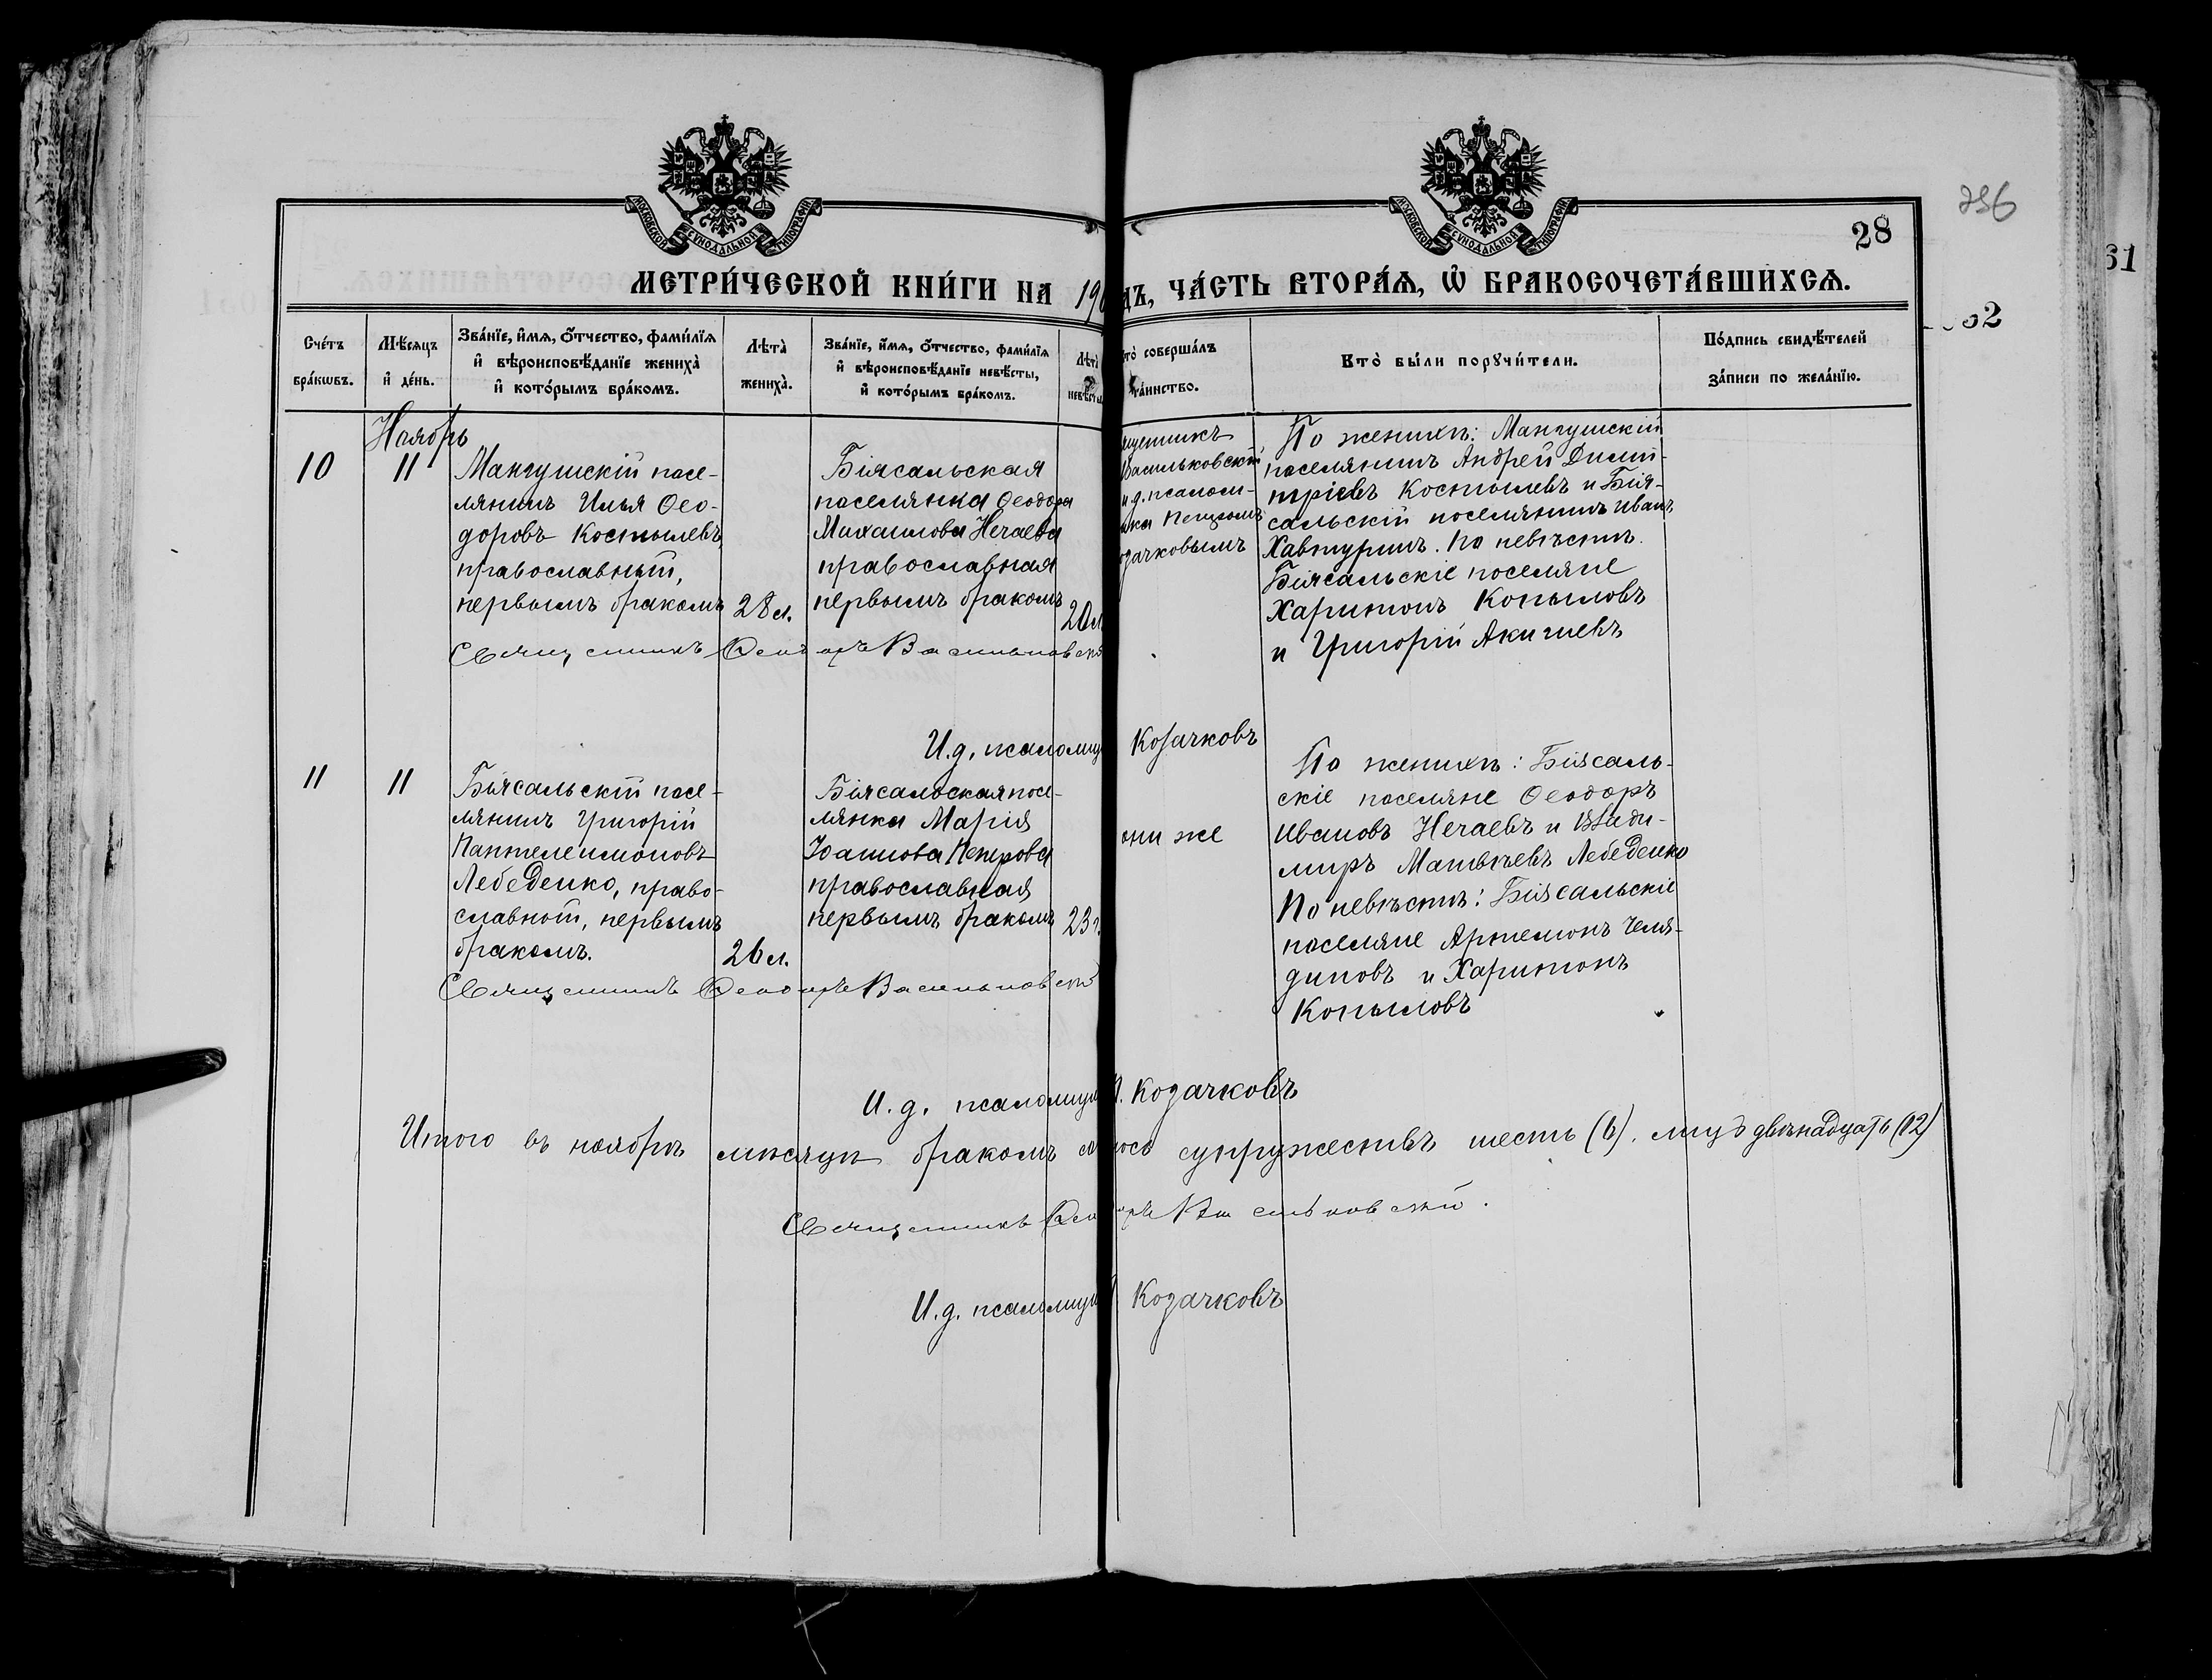 МОСКОВСКОЙ СУНОДАЛЬНОЙ ТИПОГРАФІИ
МОСКОВСКОЙ СУНОДАЛЬНОЙ ТИПОГРАФІИ
28
61
52
МЕТРИ́ЧЕСКОЙ КНИ́ГИ НА 190
дъ, ЧА́СТЬ ВТОРА́Ѧ, Ѡ҆ БРАКОСОЧЕТА́ВШИХСѦ.
Сче́тъ бра́кѡвъ.
Мѣ́сѧцъ и҆ де́нь.
Зва́нїе, и҆́мѧ, о҆́тчество, фами́лїѧ
и҆ вѣроисповѣ́данїе жениха̀
и҆ кото́рымъ бра́комъ.
Лѣта̀ жениха̀.
Зва́нїе, и҆́мѧ, о҆́тчество, фами́лїѧ
и҆ вѣроисповѣ́данїе невѣ́сты,
и҆ кото́рымъ бра́комъ.
Лѣта̀
невѣ́ст
то̀ соверша́лъ
та́инство.
Кто̀ бы́ли порꙋчи́тели.
По́дпись свидѣ́телей
за́писи по жела́нїю.
Ноябрь
10
11
Мангушскій посе-
лянинъ Илья Ѳео-
доровъ Костылевъ,
православный,
первымъ бракомъ
28 л.
Біясальская
поселянка Ѳеодора
Михаилова Нечаева
православная
первымъ бракомъ
20 л.
щенникъ
Васильковскій
и.д. псалом-
ика Петромъ
озачковымъ
По женихѣ: Мангушскій
поселянинъ Андрей Дими-
тріевъ Костылевъ и Бія-
сальскій поселянинъ Иванъ
Хавтуринъ. По невѣстѣ.
Біясальскіе поселяне
Харитонъ Копыловъ
и Григорій Акичевъ
Священникъ Ѳеодоръ Васильковскій
И.д. псаломщ Козачковъ
11
11
Біясальскій посе-
лянинъ Григорій
Пантелеимоновъ
Лебеденко, право-
славный, первымъ
бракомъ.
26 л.
Біясальская посе-
лянка Марія
Іоаннова Петрова
православная
первымъ бракомъ
23 г.
они же
По женихѣ: Біясаль-
скіе поселяне Ѳеодоръ
Ивановъ Нечаевъ и Влади-
миръ Матвѣевъ Лебеденко
По невѣстѣ: Біясальскіе
поселяне Артемонъ Челя-
диновъ и Харитонъ
Копыловъ
Священникъ Ѳеодоръ Васильковскій
И.д. псаломщи Козачковъ
Итого въ ноябрѣ мѣсяцѣ бракомъ супружествъ шесть (6). лицъ двѣнадцать (12)
Священникъ Ѳеодоръ Васильковскій.
И.д. псаломщи Козачковъ